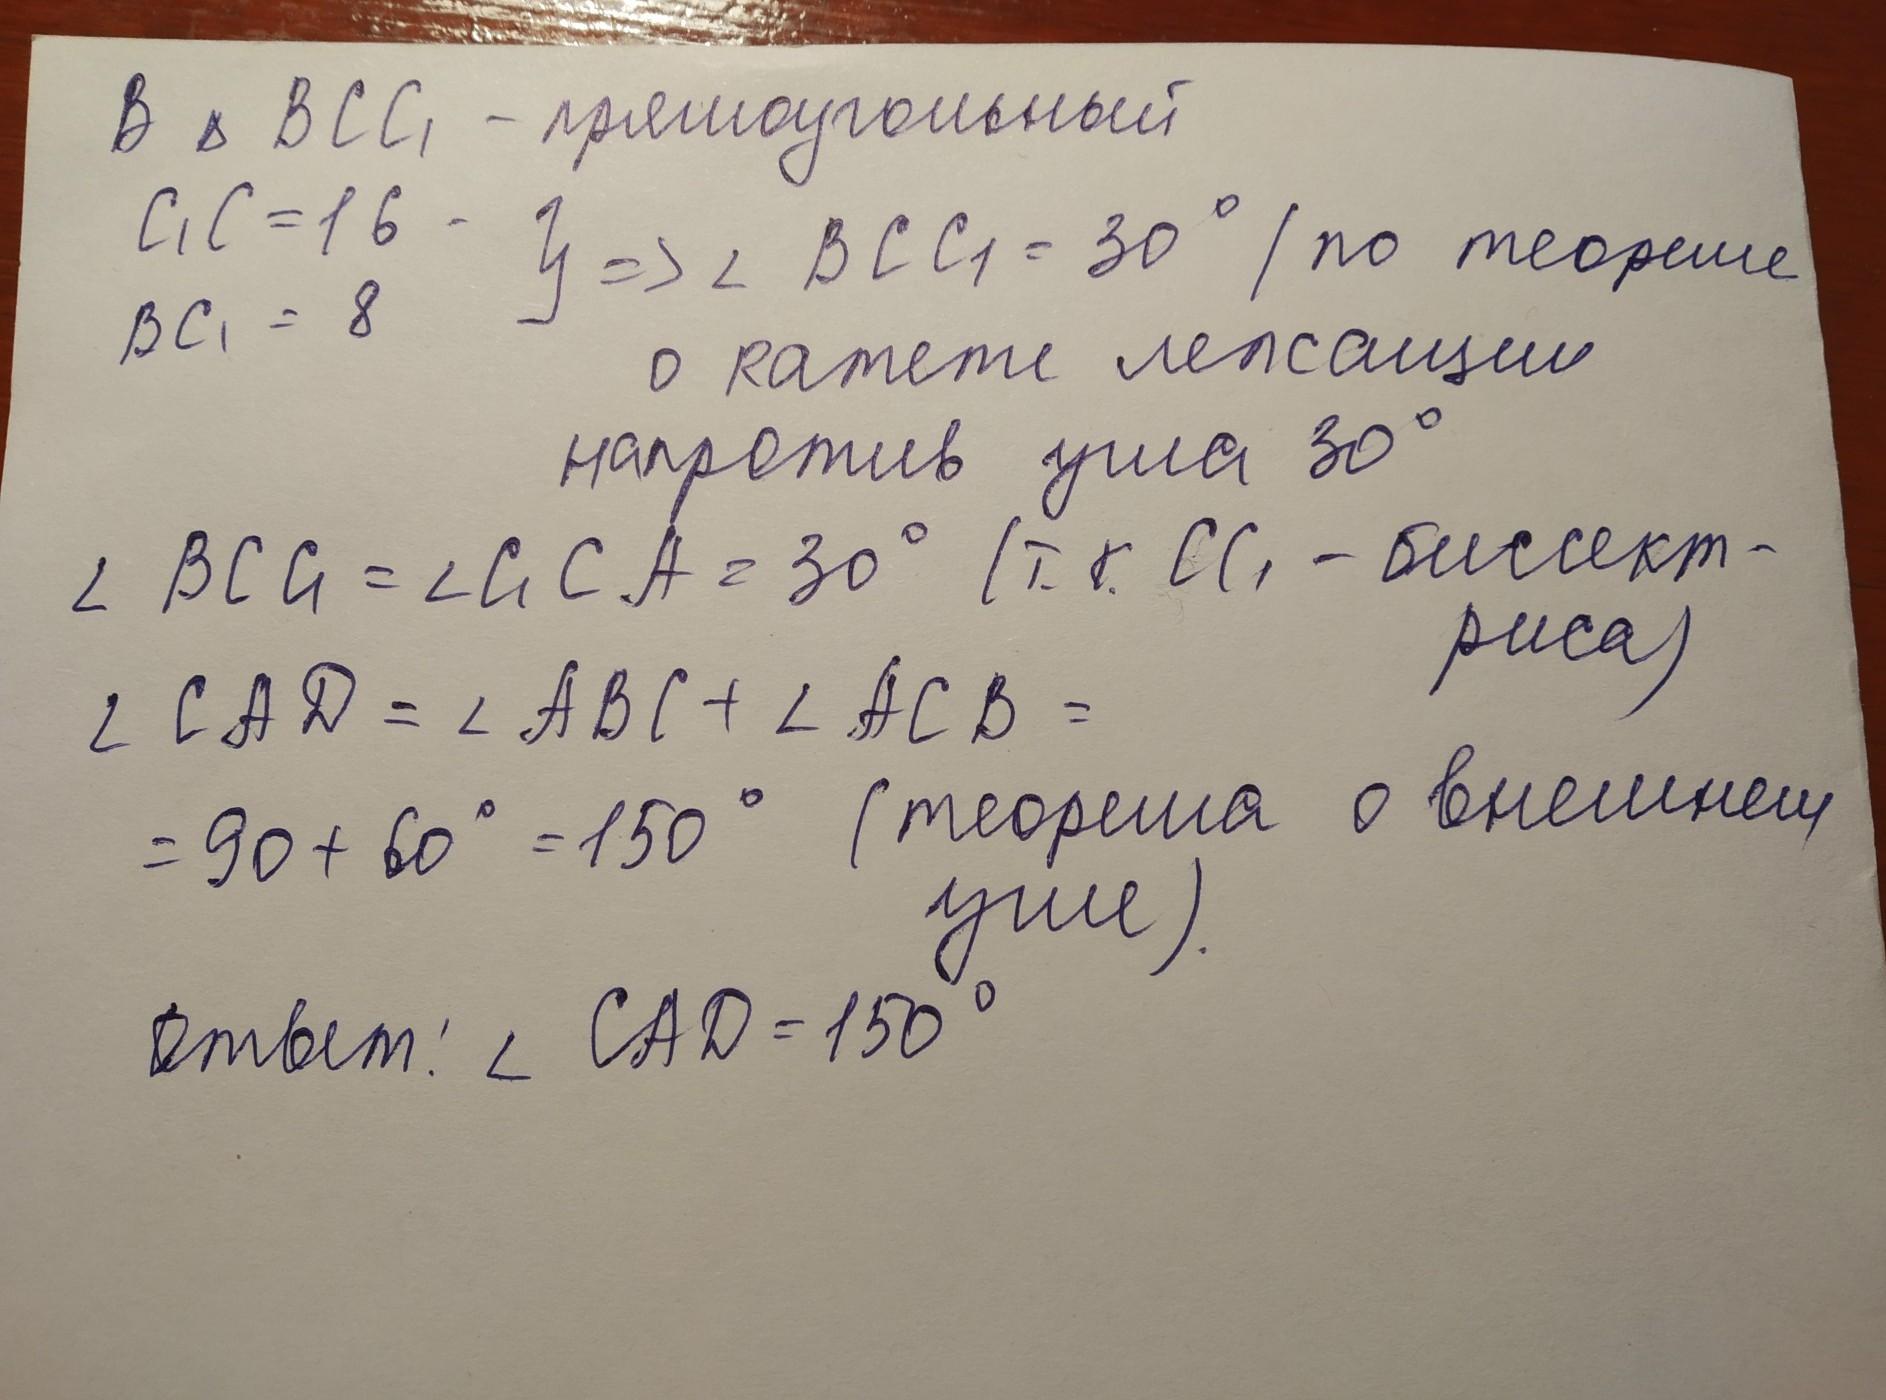 В ∆ BCC₁ - прямоугольный
C₁C = 16 -
BC₁ = 8
} => ∠ BCC₁ = 30° (по теореме
о катете лежащим
напротив угла 30°
∠ BCC₁ = ∠C₁CA = 30° (т.к. CC₁ - биссект-
риса)
∠ CAD = ∠ ABC + ∠ ACB =
= 90 + 60° = 150° (теорема о внешнем
угле).
Ответ: ∠ CAD = 150°